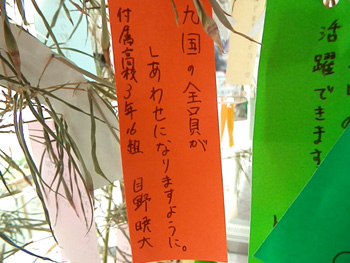 九国の全員が
しあわせになりますように。
付属高校3年16組
日野 暁大
活躍できます